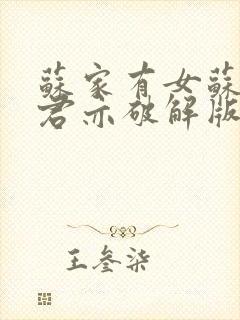 蘇家有女蘇
君亦破解版
王叁柒